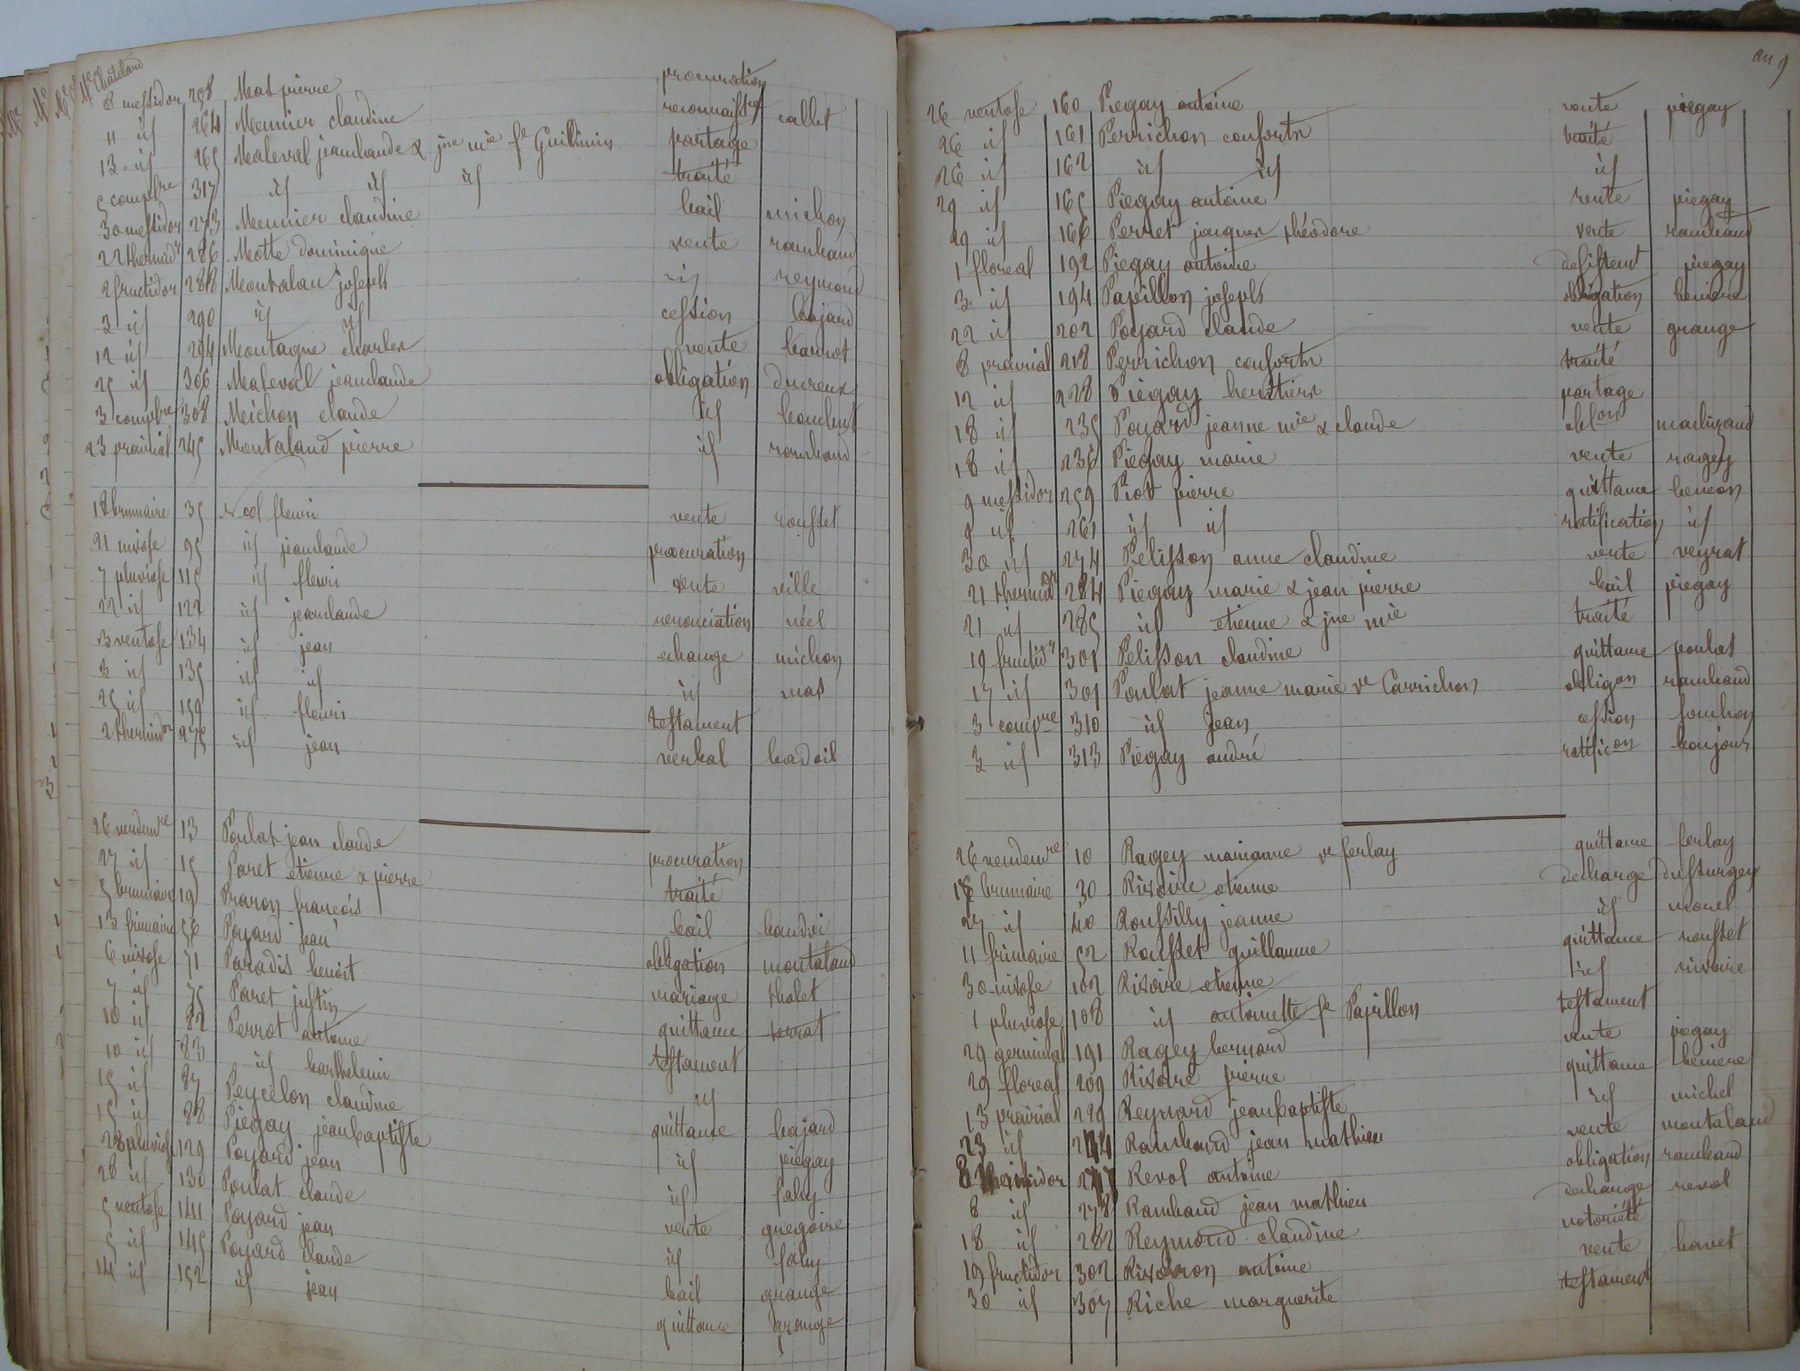 Me Châteland
8 messidor 258 Mas pierre procuration
11 id 264 Meunier claudine reconnaisse callet
13 id 265 Maleval jeanclaude & jne mie fe Guillmin partage
5 compbre 317 id id id traité
30 messidor 273 Meunier claudine bail michon
22 thermidr 286 Motte dominique vente rambaud
2 fructidor 288 Montalan joseph id reymond
3 id 290 id id cession bajard
12 id 294 Montagne charles vente barnot
25 id 306 Maleval jeanclaude obligation ducreux
3 compbre 308 Michon claude id
23 prairial 245 Montaland pierre id rambaud
18 brumaire 35 Néel fleuri vente rousset
21 nivose 95 id jeanclaude procuration
7 pluviose 115 id fleuri vente ville
22 id 122 id jeanclaude renonciation néel
3 ventose 134 id jean echange michon
3 id 135 id id id mas
25 id 159 id fleuri testament
2 thermidor 275 id jean verbal badoil
26 vendemre 13 Poulat jean claude procuration
27 id 15 Paret etienne & pierre traité
5 brumaire 19 Praron françois bail
13 frimaire 56 Poyard jean obligation montaland
6 nivose 71 Paradis benoit mariage tholet
7 id 75 Paret justin quittance
10 id 82 Perrot antoine testament
10 id 83 id barthelemi id
15 id 87 Peycelon claudine quittance bajard
15 id 88 Piegay jeanbaptiste id piegay
28 pluviose 129 Poyard jean id fahy
28 id 130 Poulat claude vente gregoire
5 ventose 141 Poyard jean id fahy
5 id 145 Poyard claude bail grange
14 id 152 id jean quittance grange
an 9
26 ventose 160 Piegay antoine vente piegay
26 id 161 Perrichon conforts traité
26 id 162 id id id
29 id 165 Piegay antoine vente piegay
29 id 166 Perret jacques théodore vente rambaud
1 floreal 192 Piegay antoine desistent piegay
3 id 194 Papillon joseph obligation beniere
22 id 202 Poyard claude vente grange
8 prairial 218 Perrichon conforts traité
12 id 228 Piegay heritiers partage
18 id 235 Poyard jeanne mie & claude oblon
18 id 236 Piegay marie vente ragey
9 messidor 259 Piot pierre quittance
9 id 261 id id ratification id
30 id 274 Pelisson anne claudine vente veyrat
21 thermidr 284 Piegay marie & jean pierre bail piegay
21 id 285 id etienne & jne mie traité
19 fructidr 301 Pelisson claudine quittance poulat
17 id 301 Poulat jeanne marie ve Carrichon obligon rambaud
3 compre 310 id jean cession
3 id 313 Piegay andré ratificon bonjour
26 vendemre 10 Ragey marianne ve ferlay quittance ferlay
18 brumaire 30 Rivoire etienne decharge dussurgey
27 id 40 Roussilly jeanne id
11 frimaire 52 Rousset guillaume quittance rousset
30 nivose 102 Rivoire etienne id rivoire
1 pluviose 108 id antoinette fe Papillon testament
29 germinal 191 Ragey bernard vente piegay
29 floreal 209 Rivoire pierre quittance beniere
13 prairial 229 Reynard jeanbaptiste id michel
23 id 244 Rambaud jean mathieu vente montaland
8 thermidor 277 Revol antoine obligation rambaud
8 id 278 Rambaud jean mathieu decharge revol
18 id 282 Reymond claudine notorieté
19 fructidor 302 antoine vente
30 id 307 Riche marguerite testament